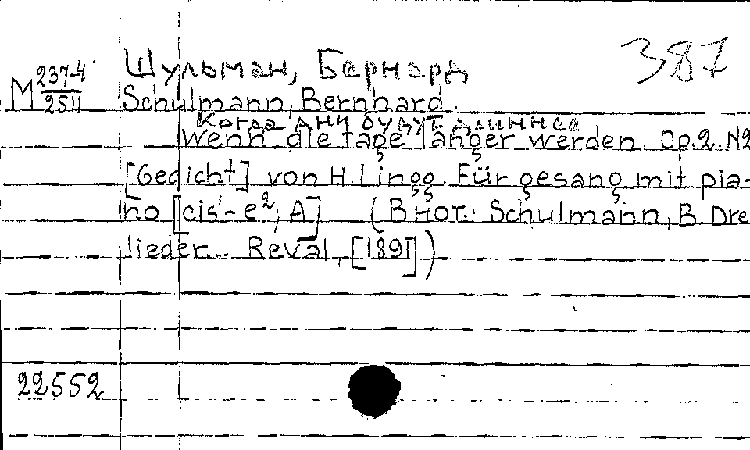 Шульман, Бернард
387
М 237-4/2511
Schulmann, Bernhard.
Когда дни будут длиннее
Wenn die tage länger werden. Op.2. N2
[Gedicht] von H. Lingg. Für gesang mit pia-
no [cis'-e², A] (В нот.: Schulmann, B. Dre
lieder. Reval, [1891])
22552